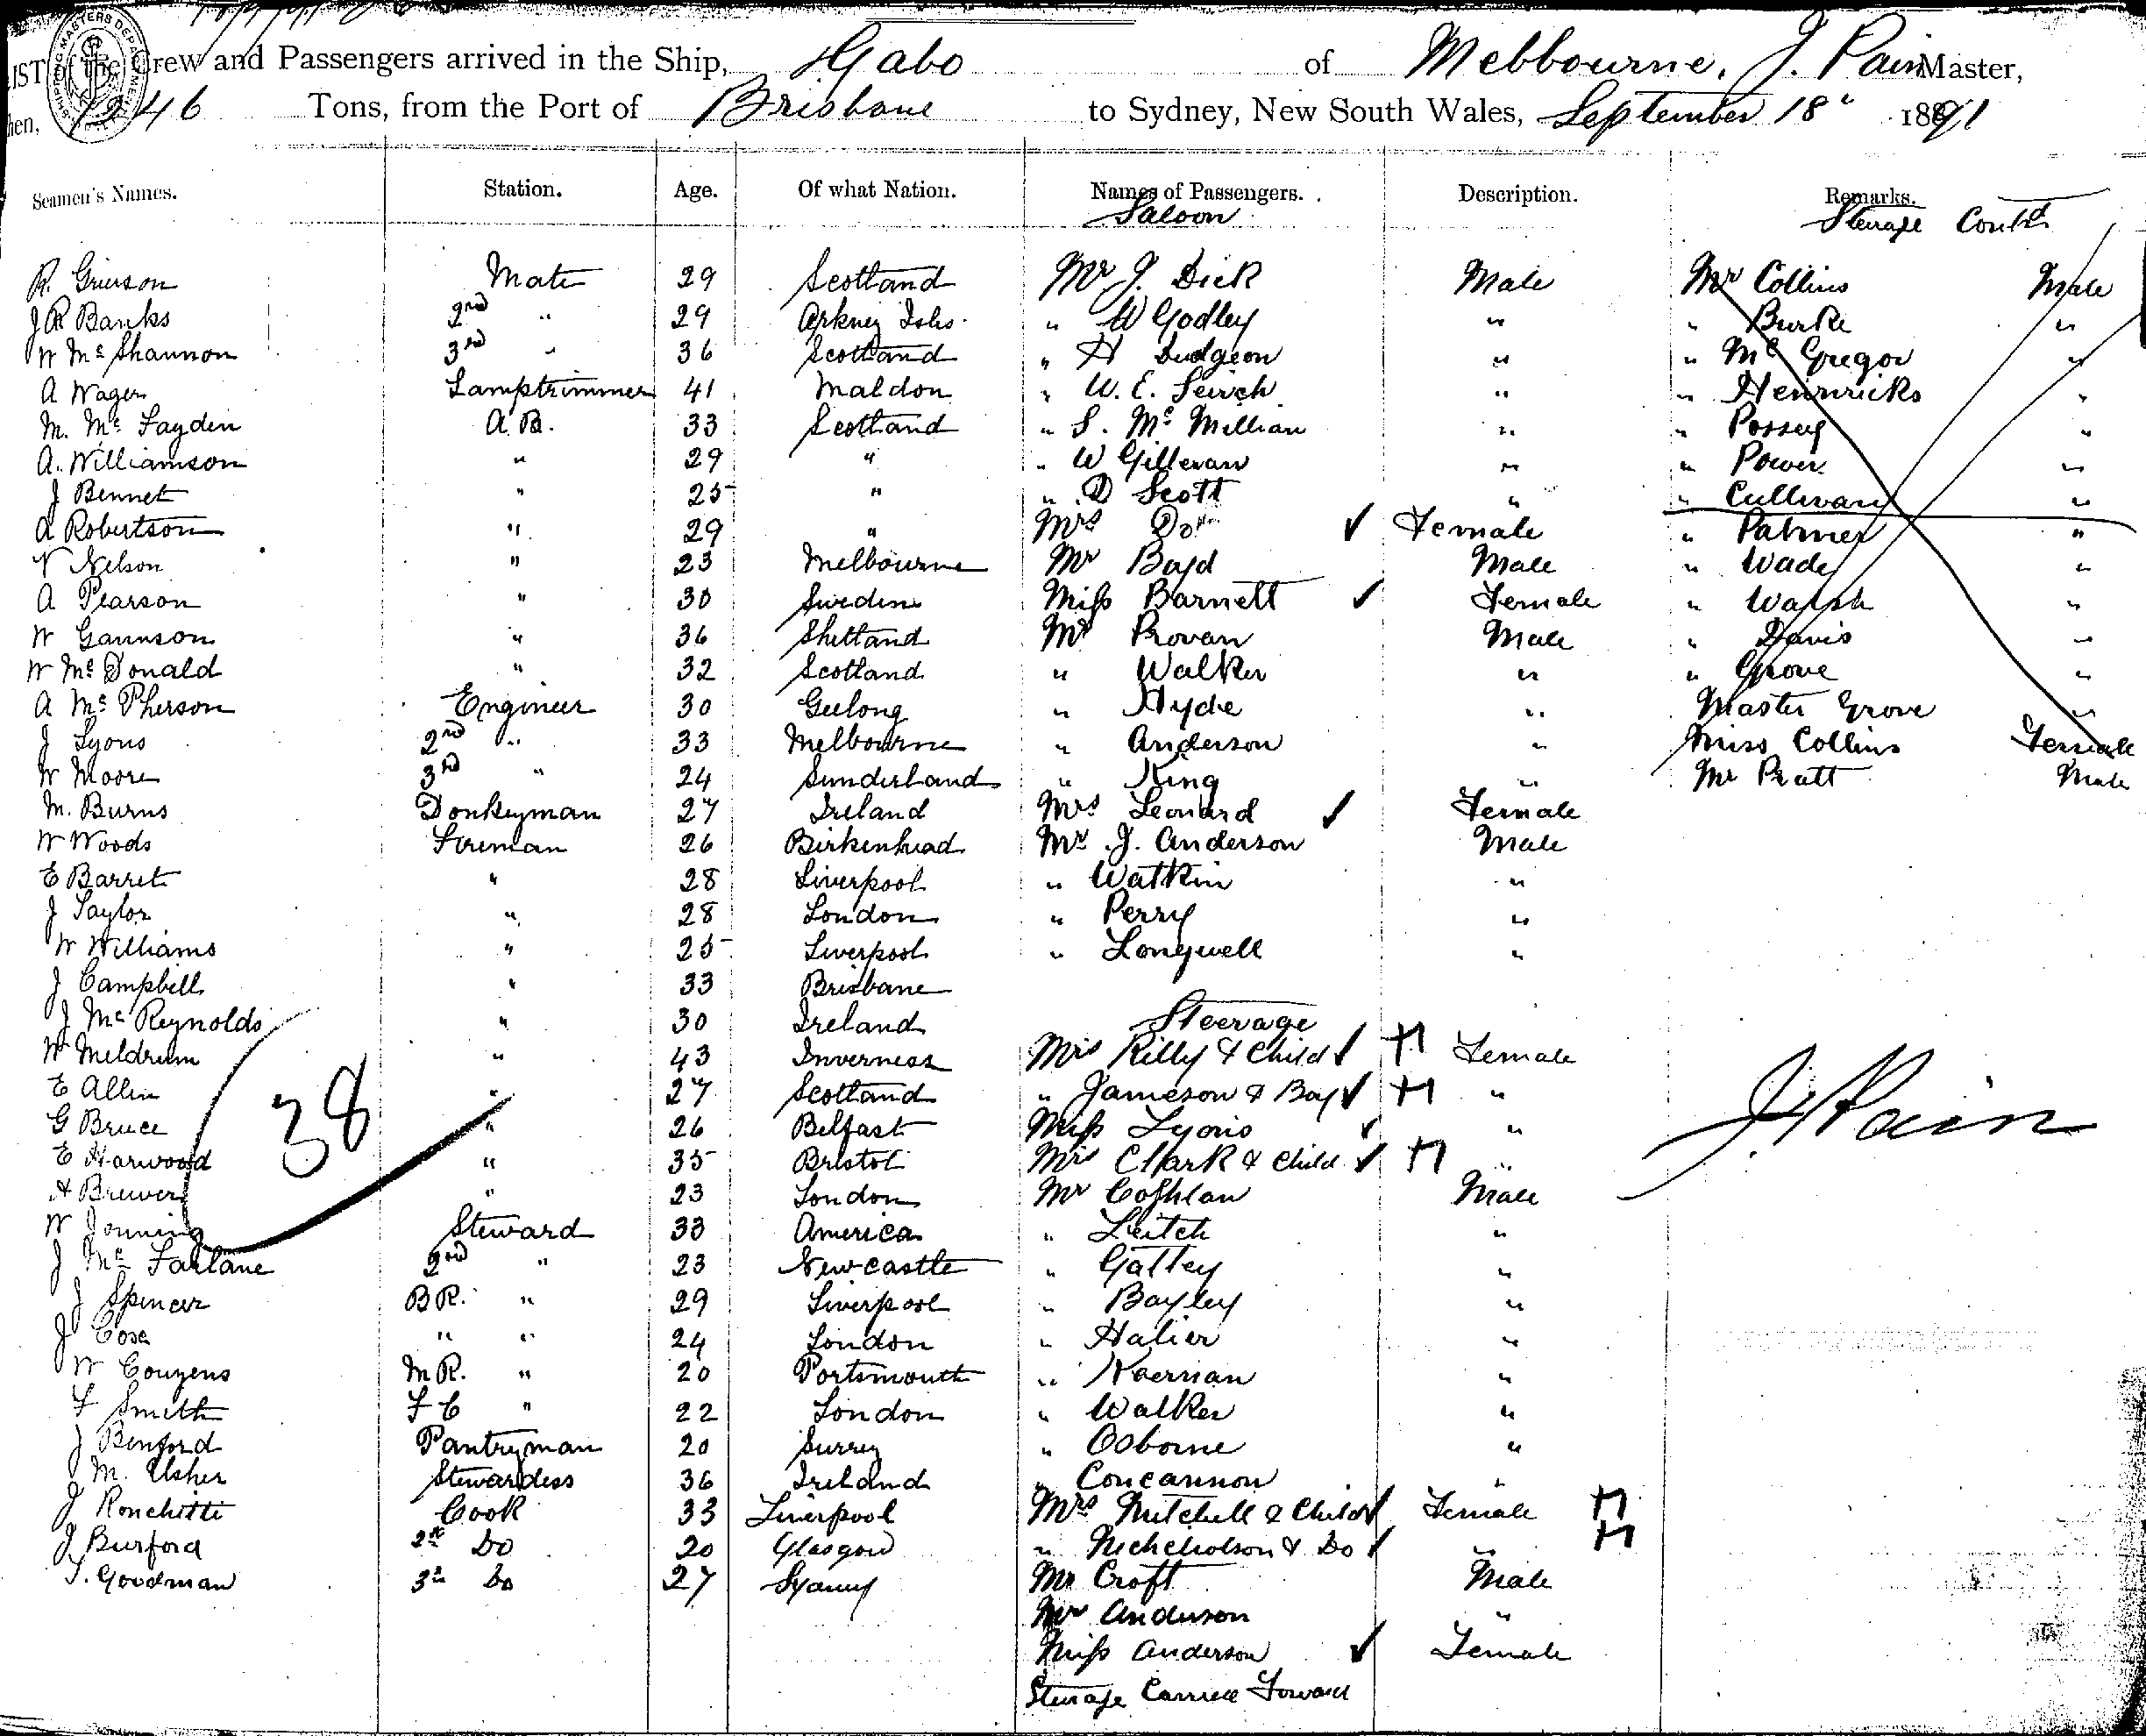 LIST of the Crew and Passengers arrived in the Ship, Gabo of Melbourne, J. Pain Master,
1246 Tons, from the Port of Brisbane to Sydney, New South Wales, September 18" 1891
Seamen's Names. Station. Age. Of what Nation. Names of Passengers. Description. Remarks.
Saloon Steerage Contd
R. Grierson Mate 29 Scotland Mr J. Dick Male Mr Collins Male
J R Banks 2nd " 29 Orkney Isls. " W Godley " " Burke "
W Mc Shannon 3rd " 36 Scotland " H Dudgeon " " Mc Gregor "
A Wager Lamptrimmer 41 Maldon " W. E. " " Heinricks "
M. Mc Fayden A.B. 33 Scotland " S. Mc Millian " " Possey "
A. Williamson " 29 " " W Gillevan " " Power "
J Bennet " 25 " " D Scott " " Cullivan "
A Robertson " 29 " Mrs Do Female " Palmer "
N Nelson " 23 Melbourne Mr Boyd Male " Wade "
A Pearson " 30 Sweden Miss Barnett Female " Walsh "
W Gannson " 36 Shetland Mr Provan Male " Davis "
W Mc Donald " 32 Scotland " Walker " " Grove "
A Mc Pherson Engineer 30 Geelong " Hyde " Master Grove "
J Lyons 2nd " 33 Melbourne " Anderson " Miss Collins Female
W Moore 3rd " 24 Sunderland " King " Mr Pratt Male
M. Burns Donkeyman 27 Ireland Mrs Leonard Female
W Woods Fireman 26 Birkenhead Mr J. Anderson Male
E Barret " 28 Liverpool " Watkin "
J Taylor " 28 London " Perry "
W Williams " 25 Liverpool " Longwell "
J Campbell " 33 Brisbane
J Mc Reynolds " 30 Ireland Steerage
W Meldrum " 43 Inverness Mrs Killy & Child Female
E Allin " 27 Scotland " Jameson & Boy "
G Bruce " 26 Belfast Miss Lyons "
E Harwood " 35 Bristol Mrs Clark & Child "
A Brewer " 23 London Mr Coghlan Male
38
J. Pain
W Jonning Steward 33 America " Leitch "
J Mc Farlane 2nd " 23 Newcastle " Gattey "
J Spencer B R. " 29 Liverpool " Bayley "
J Cose " " 24 London " Halier "
W Couzens M R. " 20 Portsmouth " Keernan "
F Smith F C " 22 London " Walker "
J Binford Pantryman 20 Surrey " Osborne "
M. Usher Stewardess 36 Ireland " Concannon "
J Ronchetti Cook 33 Liverpool Mrs Mitchell & Child Female
J Burford 2nd Do 20 Glasgow " Nicheholson & Do "
J. Goodman 3rd Do 27 Sydney Mr Croft Male
Mr Anderson "
Miss Anderson Female
Steerage Carried Forward